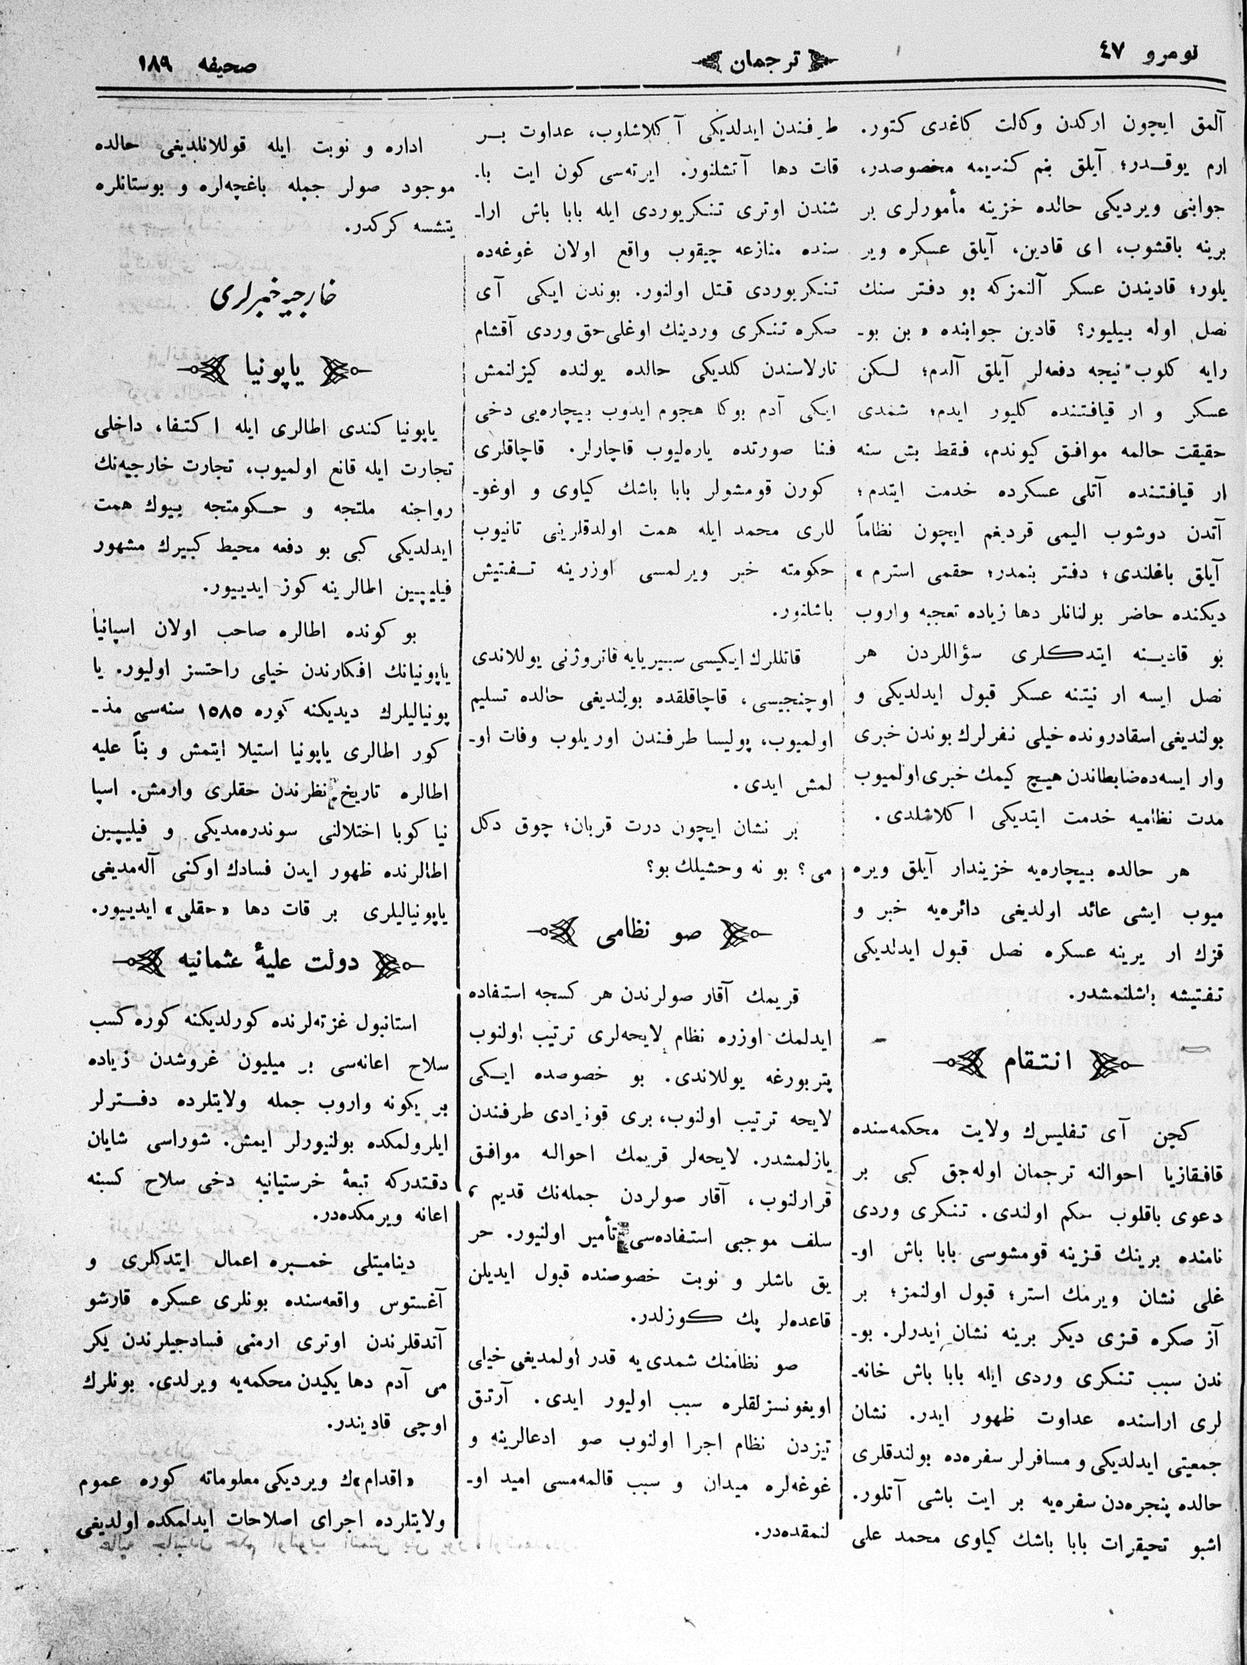 نومرو ٤٧
ترجمان
صحيفه ١٨٩
آلمق ايچون اركدن وكالت كاغدى كتور.
ارم يوقدر؛ آيلق بنم كنديمه مخصوصدر،
جوابنى ويرديكى حالده خزينه مأمورلرى بر
برينه باقشوب، اى قادين، آيلق عسكره وير
يلور؛ قاديندن عسكر آلنمزكه بو دفتر سنك
نصل اوله بيليور؟ قادين جوابنده «بن بو‌ـ
رايه كلوب نيجه دفعه‌لر آيلق آلدم؛ لكن
عسكر و ار قيافتنده كليور ايدم؛ شمدى
حقيقت حالمه موافق كيوندم، فقط بش سنه
ار قيافتنده آتلى عسكرده خدمت ايتدم؛
آتدن دوشوب اليمى قرديغم ايچون نظاماً
آيلق باغلندى؛ دفتر بنمدر؛ حقمى استرم»
ديكنده حاضر بولنانلر دها زياده تعجبه واروب
بو قادينه ايتدكلرى سؤاللردن هر
نصل ايسه ار نيتنه عسكر قبول ايدلديكى و
بولنديغى اسقادرونده خيلى نفرلرك بوندن خبرى
وار ايسه‌ده ضابطاندن هيچ كيمك خبرى اولميوب
مدت نظاميه خدمت ايتديكى اكلاشلدى.
هر حالده بيچاره‌يه خزيندار آيلق ويره
ميوب ايشى عائد اولديغى دائره‌يه خبر و
قزك ار يرينه عسكره نصل قبول ايدلديكى
تفتيشه باشلنمشدر.
انتقام
كچن آى تفليسك ولايت محكمه‌سنده
قافقازيا احوالنه ترجمان اوله‌جق كبى بر
دعوى باقلوب حكم اولندى. تنكرى وردى
نامنده برينك قزينه قومشوسى بابا باش او‌ـ
غلى نشان ويرمك استر؛ قبول اولنمز؛ بر
آز صكره قزى ديكر برينه نشان ايدرلر. بو‌ـ
ندن سبب تنكرى وردى ايله بابا باش خانه‌ـ
لرى اراسنده عداوت ظهور ايدر. نشان
جمعيتى ايدلديكى و مسافرلر سفره‌ده بولندقلرى
حالده پنجره‌دن سفره‌يه بر ايت باشى آتلور.
اشبو تحيقرات بابا باشك كياوى محمد على
طرفندن ايدلديكى آكلاشلوب، عداوت بر
قات دها آتشلنور. ايرته‌سى كون ايت با‌ـ
شندن اوترى تنكريوردى ايله بابا باش ارا‌ـ
سنده منازعه چيقوب واقع اولان غوغه‌ده
تنكريوردى قتل اولنور. بوندن ايكى آى
صكره تنكرى وردينك اوغلى حق وردى آقشام
تارلاسندن كلديكى حالده يولنده كيزلنمش
ايكى آدم بوكا هجوم ايدوب بيچاره‌يى دخى
فنا صورتده ياره‌ليوب قاچارلر. قاچاقلرى
كورن قومشولر بابا باشك كياوى و اوغو‌ـ
للارى محمد ايله همت اولدقلرينى تانيوب
حكومته خبر ويرلمسى اوزرينه تفتيش
باشلنور.
قاتللرك ايكيسى سبيريايه قاتروژنى يوللاندى
اوچنجيسى، قاچاقلقده بولنديغى حالده تسليم
اولميوب، پوليسا طرفندن اوريلوب وفات او‌ـ
لمش ايدى.
بر نشان ايچون درت قربان؛ چوق دكل
مى؟ بو نه وحشيلك بو؟
صو نظامى
قريمك آقار صولرندن هر كسجه استفاده
ايدلمك اوزره نظام لايحه‌لرى ترتيب اولنوب
پتربورغه يوللاندى. بو خصوصده ايكى
لايحه ترتيب اولنوب، برى قونرادى طرفندن
يازلمشدر. لايحه‌لر قريمك احواله موافق
قرارلنوب، آقار صولردن جمله‌نك قديم
سلف موجبى استفاده‌سى تأمير اولنيور. حر
يق باشلر و نوبت خصوصنده قبول ايديلن
قاعده‌لر پك كوزلدر.
صو نظامنك شمدى يه قدر اولمديغى خيلى
اويغونسزلقلره سبب اوليور ايدى. آرتق
تيزدن نظام اجرا اولنوب صو ادعالرينه و
غوغه‌لره ميدان و سبب قالمه‌مسى اميد او‌ـ
لنمقده‌در.
اداره و نوبت ايله قوللانلديغى حالده
موجود صولر جمله باغچه‌لره و بوستانلره
يتشسه كركدر.
خارجيه خبرلرى
ياپونيا
ياپونيا كندى اطالرى ايله اكتفا، داخلى
تجارت ايله قانع اولميوب، تجارت خارجيه‌نك
رواجنه ملتجه و حكومتجه بيوك همت
ايدلديكى كبى بو دفعه محيط كبيرك مشهور
فيليپين اطالرينه كوز ايدييور.
بو كونده اطالره صاحب اولان اسپانيا
ياپونيانك افكارندن خيلى راحتسز اوليور. يا
پونياليلرك ديديكنه كوره ١٥٨٥ سنه‌سى مذ‌ـ
كور اطالرى ياپونيا استيلا ايتمش و بناً عليه
اطالره تاريخ نظرندن حقلرى وارمش. اسپا
نيا كوبا اختلالنى سوندره‌مديكى و فيليپين
اطالرنده ظهور ايدن فسادك اوكنى آله‌مديغى
ياپونياليلرى بر قات دها «حقلى» ايدييور.
دولت عليۀ عثمانيه
استانبول غزته‌لرنده كورلديكنه كوره كسب
سلاح اعانه‌سى بر ميليون غروشدن زياده
بر يكونه واروب جمله ولايتلرده دفترلر
ايلرولمكده بولنيورلر ايمش. شوراسى شايان
دقتدركه تبعۀ خرستيانيه دخى سلاح كسبنه
اعانه ويرمكده‌در.
ديناميتلى خمبره اعمال ايتدكلرى و
آغستوس واقعه‌سنده بونلرى عسكره قارشو
آتدقلرندن اوترى ارمنى فسادجيلرندن يكر
مى آدم دها يكيدن محكمه‌يه ويرلدى. بونلرك
اوچى قاديندر.
«اقدام»ك ويرديكى معلوماته كوره عموم
ولايتلرده اجراى اصلاحات ايدلمكده اولديغى